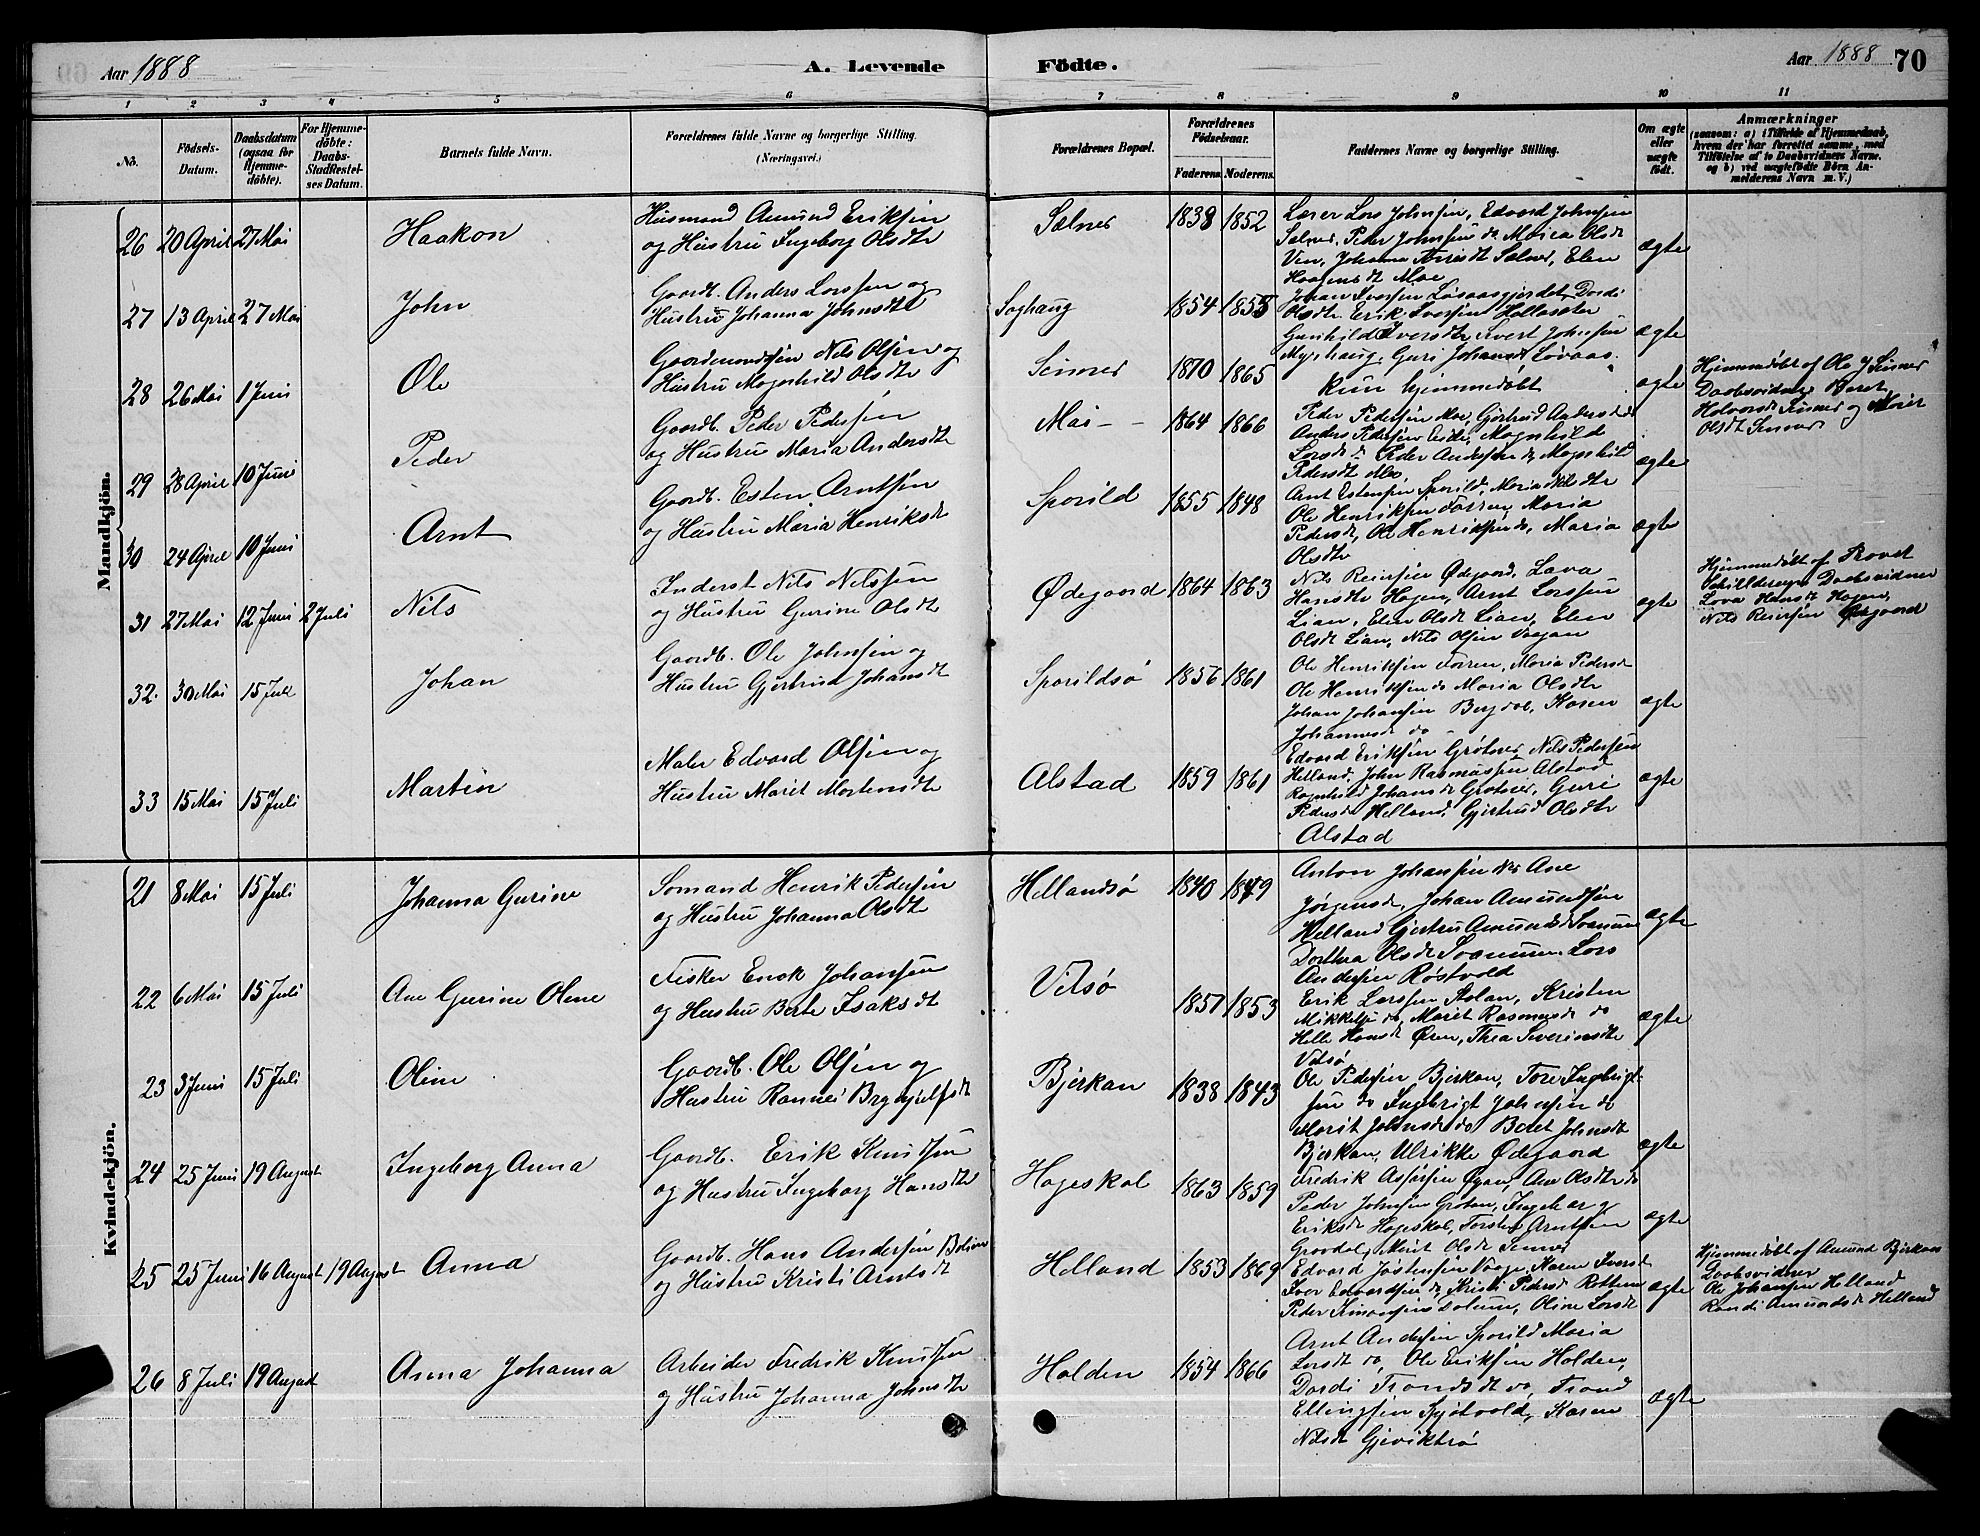 Aar 1888
A. Levende Födte.
Aar 1888 70
1 2 3 4 5 6 7 8 9 10 11
No.
Födsels-
Datum.
Daabsdatum
(ogsaa for
Hjemme-
döbte).
For Hjemme-
döbte:
Daabs-
Stadfæstel-
ses Datum.
Barnets fulde Navn.
Forældrenes fulde Navne og borgerlige Stilling.
(Næringsvei.)
Forældrenes Bopæl.
Forældrenes
Födselsaar.
Faderens. Moderens.
Faddernes Navne og borgerlige Stilling.
Om ægte
eller
uægte
födt.
Anmærkninger
(saasom: a) i Tilfælde af Hjemmedaab,
hvem der har forrettet samme, med
Tilföielse af to Daabsvidners Navne.
og b) ved uægtefödte Börn An-
melderens Navn m. V.)
Mandkjön.
26 20 April 27 Mai Haakon
Husmand Amund Eriksen
og Hustru Ingeborg Olsdt
Selnes 1838 1852
Lærer Lars Johnsen, Edvard Johnsen
Selnes, Peder Johnsen do Marea Olsdt
Ven, Johanna Selnes, Elen
Haagensdt Moe
ægte
27 13 April 27 Mai John
Gaardb. Anders Larssen og
Hustru Johanna Johnsdt
Soghaug 1854 1855
Johan Iversen Løsaasgjerdet, Dordi
Olsdt Erik Iversen Hellasæter
Gunhild Iversdt, Sivert Johnsen
Myrhaug, Guri Johansdt Løvaas
ægte
28 26 Mai 1 Juni Ole
Gaardmandssøn Nils Olsen og
Hustru Magnhild Olsdt
Sinnes 1870 1865
Kun hjemmedøbt
ægte
Hjemmedøbt af Ole J Sinnes
Daabsvidner Beret
Halvorsdt Sinnes og
Olsdt Sinnes
29 28 April 10 Juni Peder
Gaardb. Peder Pedersen
og Hustru Maria Andersdt
Moe 1864 1866
Peder Pedersen Moe, Gjertrud Andersdt do
Anders Pedersen Eide, Magnhild
Larsdt do Peder Andersen do, Magnhild
Pedersdt Moe
ægte
30 24 April 10 Juni Arnt
Gaardb. Esten Arntsen
og Hustru Maria Henriksdt
Sporild 1855 1848
Arnt Estensen Sporild, Maria
Ole Henriksen Forren, Maria
Pedersdt, Ole Henriksen do, Maria
Olsdt
ægte
31 27 Mai 12 Juni 2 Juli Nils
Inderst Nils Nilssen
og Hustru Gurine Olsdt
Ødegaard 1864 1863
Nils Reiersen Ødegaard, Lava
Hansdt Hagen, Arnt Larssen
Lian, Elen Olsdt Lian, Elen
Olsdt Lian, Nils Olsen Vaagan
ægte
Hjemmedøbt af
Daabsvidner
Lava Hansdt Hagen,
Nils Reiersen Ødegaard
32. 30 Mai 15 Juli Johan
Gaardb. Ole Johnsen og
Hustru Gjertrud Johansdt
Sporildsø 1856 1861
Ole Henriksen Forren, Maria Pedersdt
Ole Henriksen do Maria Olsdt
Johan Johansen Bergdal, Karen
Johannesdt do
ægte
33 15 Mai 15 Juli Martin
Maler Edvard Olsen og
Hustru Marit Mortensdt
Alstad 1859 1861
Edvard Eriksen Grøtnes, Nils Pedersen
Helland, John Rasmussen Alstad
Ragnhild Johansdt Grøtnes, Guri
Pedersdt Helland, Gjertrud Olsdt
Alstad
ægte
Kvindekjön.
21 8 Mai 15 Juli Johanna Gurine
Sømand Henrik Pedersen
og Hustru Johanna Olsdt
Hellandsø 1840 1849
Anton Johansen Næs Ane
Jørgensdt, Johan Amundsen
Helland Gjertru Amundsdt Soanum
Dorthea Olsdt Soanum Lars
Andersen Røstvold
ægte
22 6 Mai 15 Juli Ane Gurine Oline
Fisker Enok Johansen
og Hustru Berte Isaksdt
Vitsø 1857 1853
Erik Larssen Stolan, Kristen
Mikkelsen do, Marit Rasmusdt do
Helle Hansdt Øren, Thea Severinsdt
Vitsø
ægte
23 3 Juni 15 Juli Oline
Gaardb. Ole Olsen og
Hustru Rannei Brynjulfsdt
Bjerkan 1838 1843
Ole Pedersen Bjerkan, Tore Ingebrigt-
sen do Ingebrigt Johnsen do
Marit Johnsdt do Beret Johnsdt
Bjerkan, Ulrikke Ødegaard
ægte
24 25 Juni 19 August Ingeborg Anna
Gaardb. Erik Knudsen
og Hustru Ingeborg Hansdt
Hageskal 1863 1859
Fredrik Øyan, Ane Olsdt do
Peder Johnsen Grøtan, Ingeborg
Eriksdt Hageskal, Torsten Arntsen
Grovdal, Marit Olsdt Sinnes
ægte
25 25 Juni 16 August 19 August Anna
Gaardb. Hans Andersen
og Hustru Kristi Arntsdt
Helland 1853 1869
Edvard Jøstensen Vaage, Karen Iversdt
Iver Edvardsen do, Kristi Pedersdt Rottem
Peder Knudsen Solum, Oline Larsdt
ægte
Hjemmedøbt af Amund Bjerkan
Daabsvidner
Ole Johansen Helland
Randi Amundsdt Helland
26 8 Juli 19 August Anna Johanna
Arbeider Fredrik Knudsen
og Hustru Johanna Johnsdt
Halden 1854 1866
Arnt Andersen Sporild Maria
Larsdt do, Ole Eriksen Halden,
Dordi Trondsdt do, Trond
Ellingsen Sjøtvold, Karen
Nilsdt Gjeviktrø
ægte